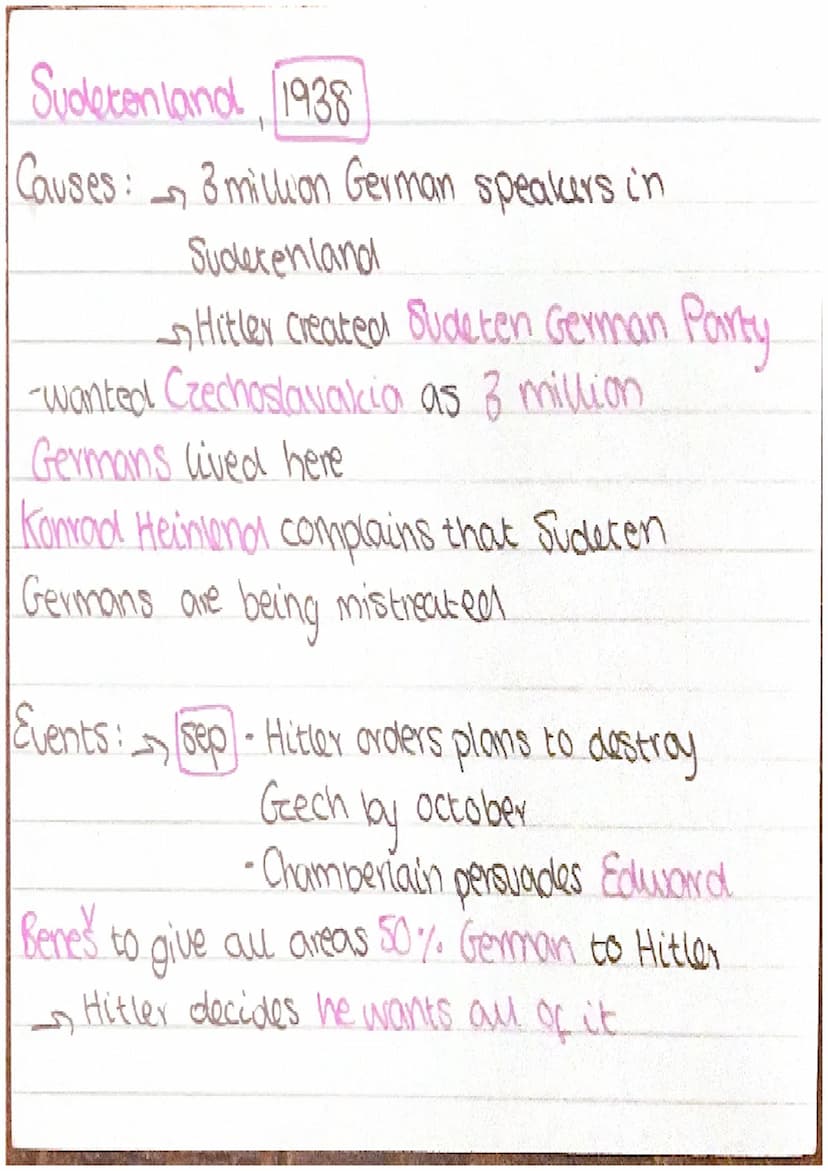 Sudetenland, 1938
Causes: → 3 million German speakers in
Sudetenland
→ Hitler created Sudeten German Party
-wanted Czechoslavakia as 3 million
Germans lived here
Konrad Heinlend complains that Sudeten
Germans are being mistreated
Events: → Sep - Hitler orders plans to destroy
Czech by october
- Chamberlain persuades Edward
Beneš to give all areas 50% German to Hitler
→ Hitler decides he wants all of it